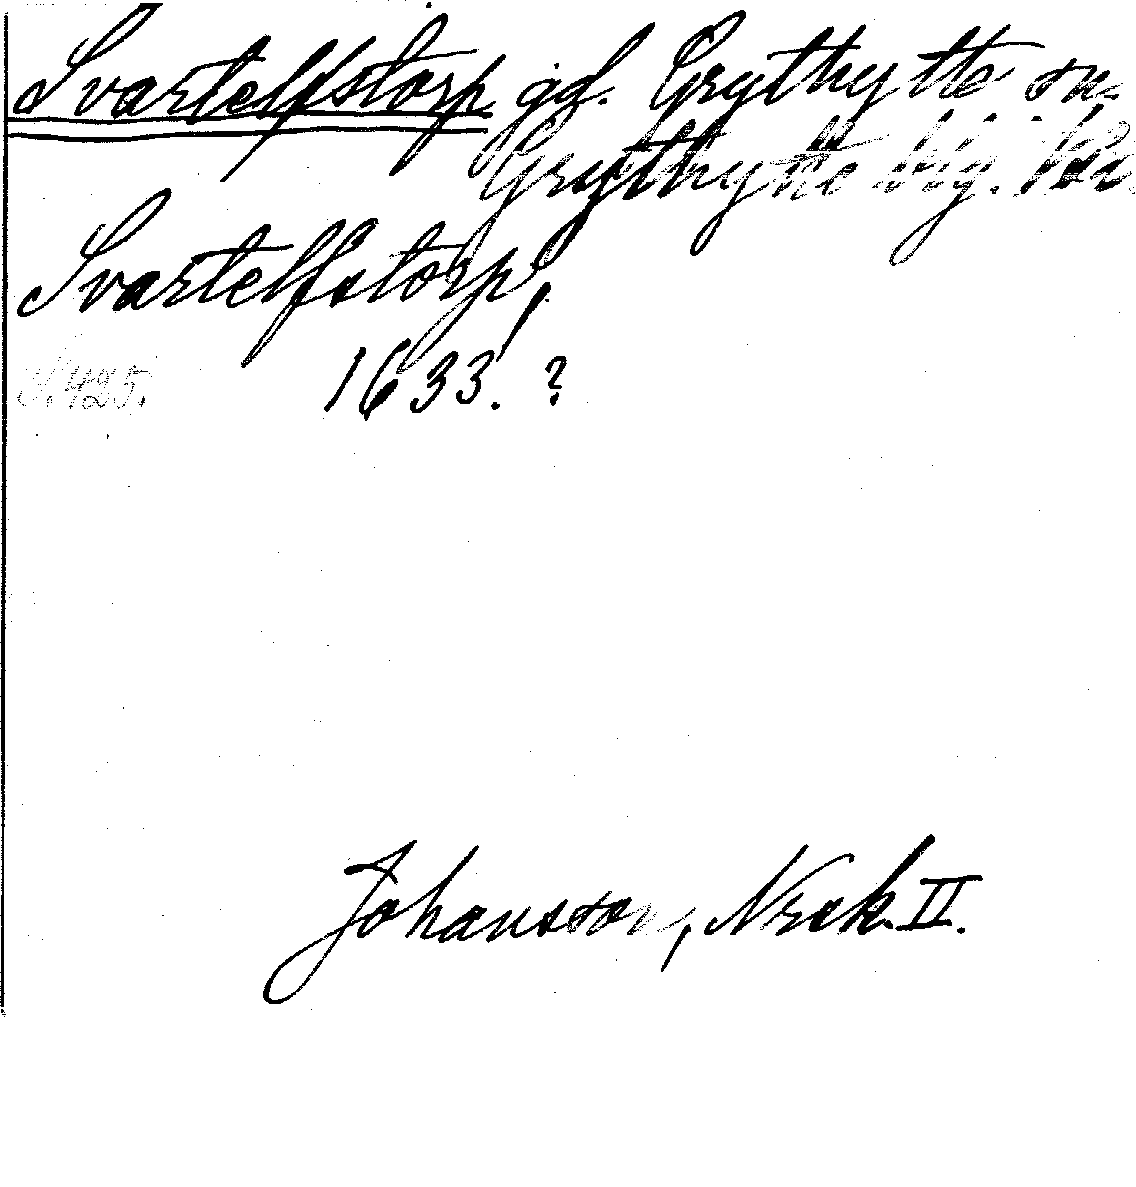 Svartelfstorp gd. Grythytte sn.
Grythytte blg.
Svartelfstorp,
S. 425. 1633! ?
Johansson, Nrck. II.